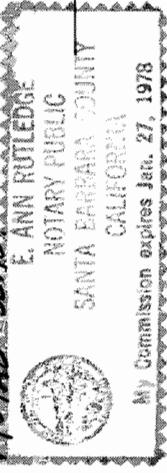 E. ANN RUTLEDGE
NOTARY PUBLIC
SANTA BARBARA COUNTY
CALIFORNIA
My Commission expires Jan. 27, 1978